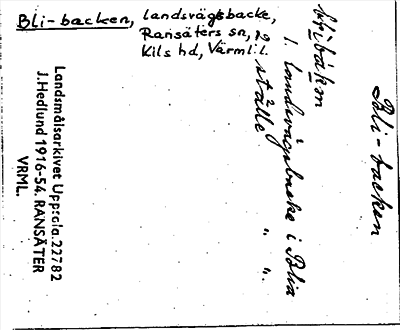 Bli-backen, landsvägsbacke,
Ransäters sn,
Kils hd, Värml. l.
Bli-backen
blibákən
1. landsvägsbacke i Blia
2. ställe " "
Landsmålsarkivet Uppsala. 22782
J. Hedlund 1916-54. RANSÄTER
VRML.